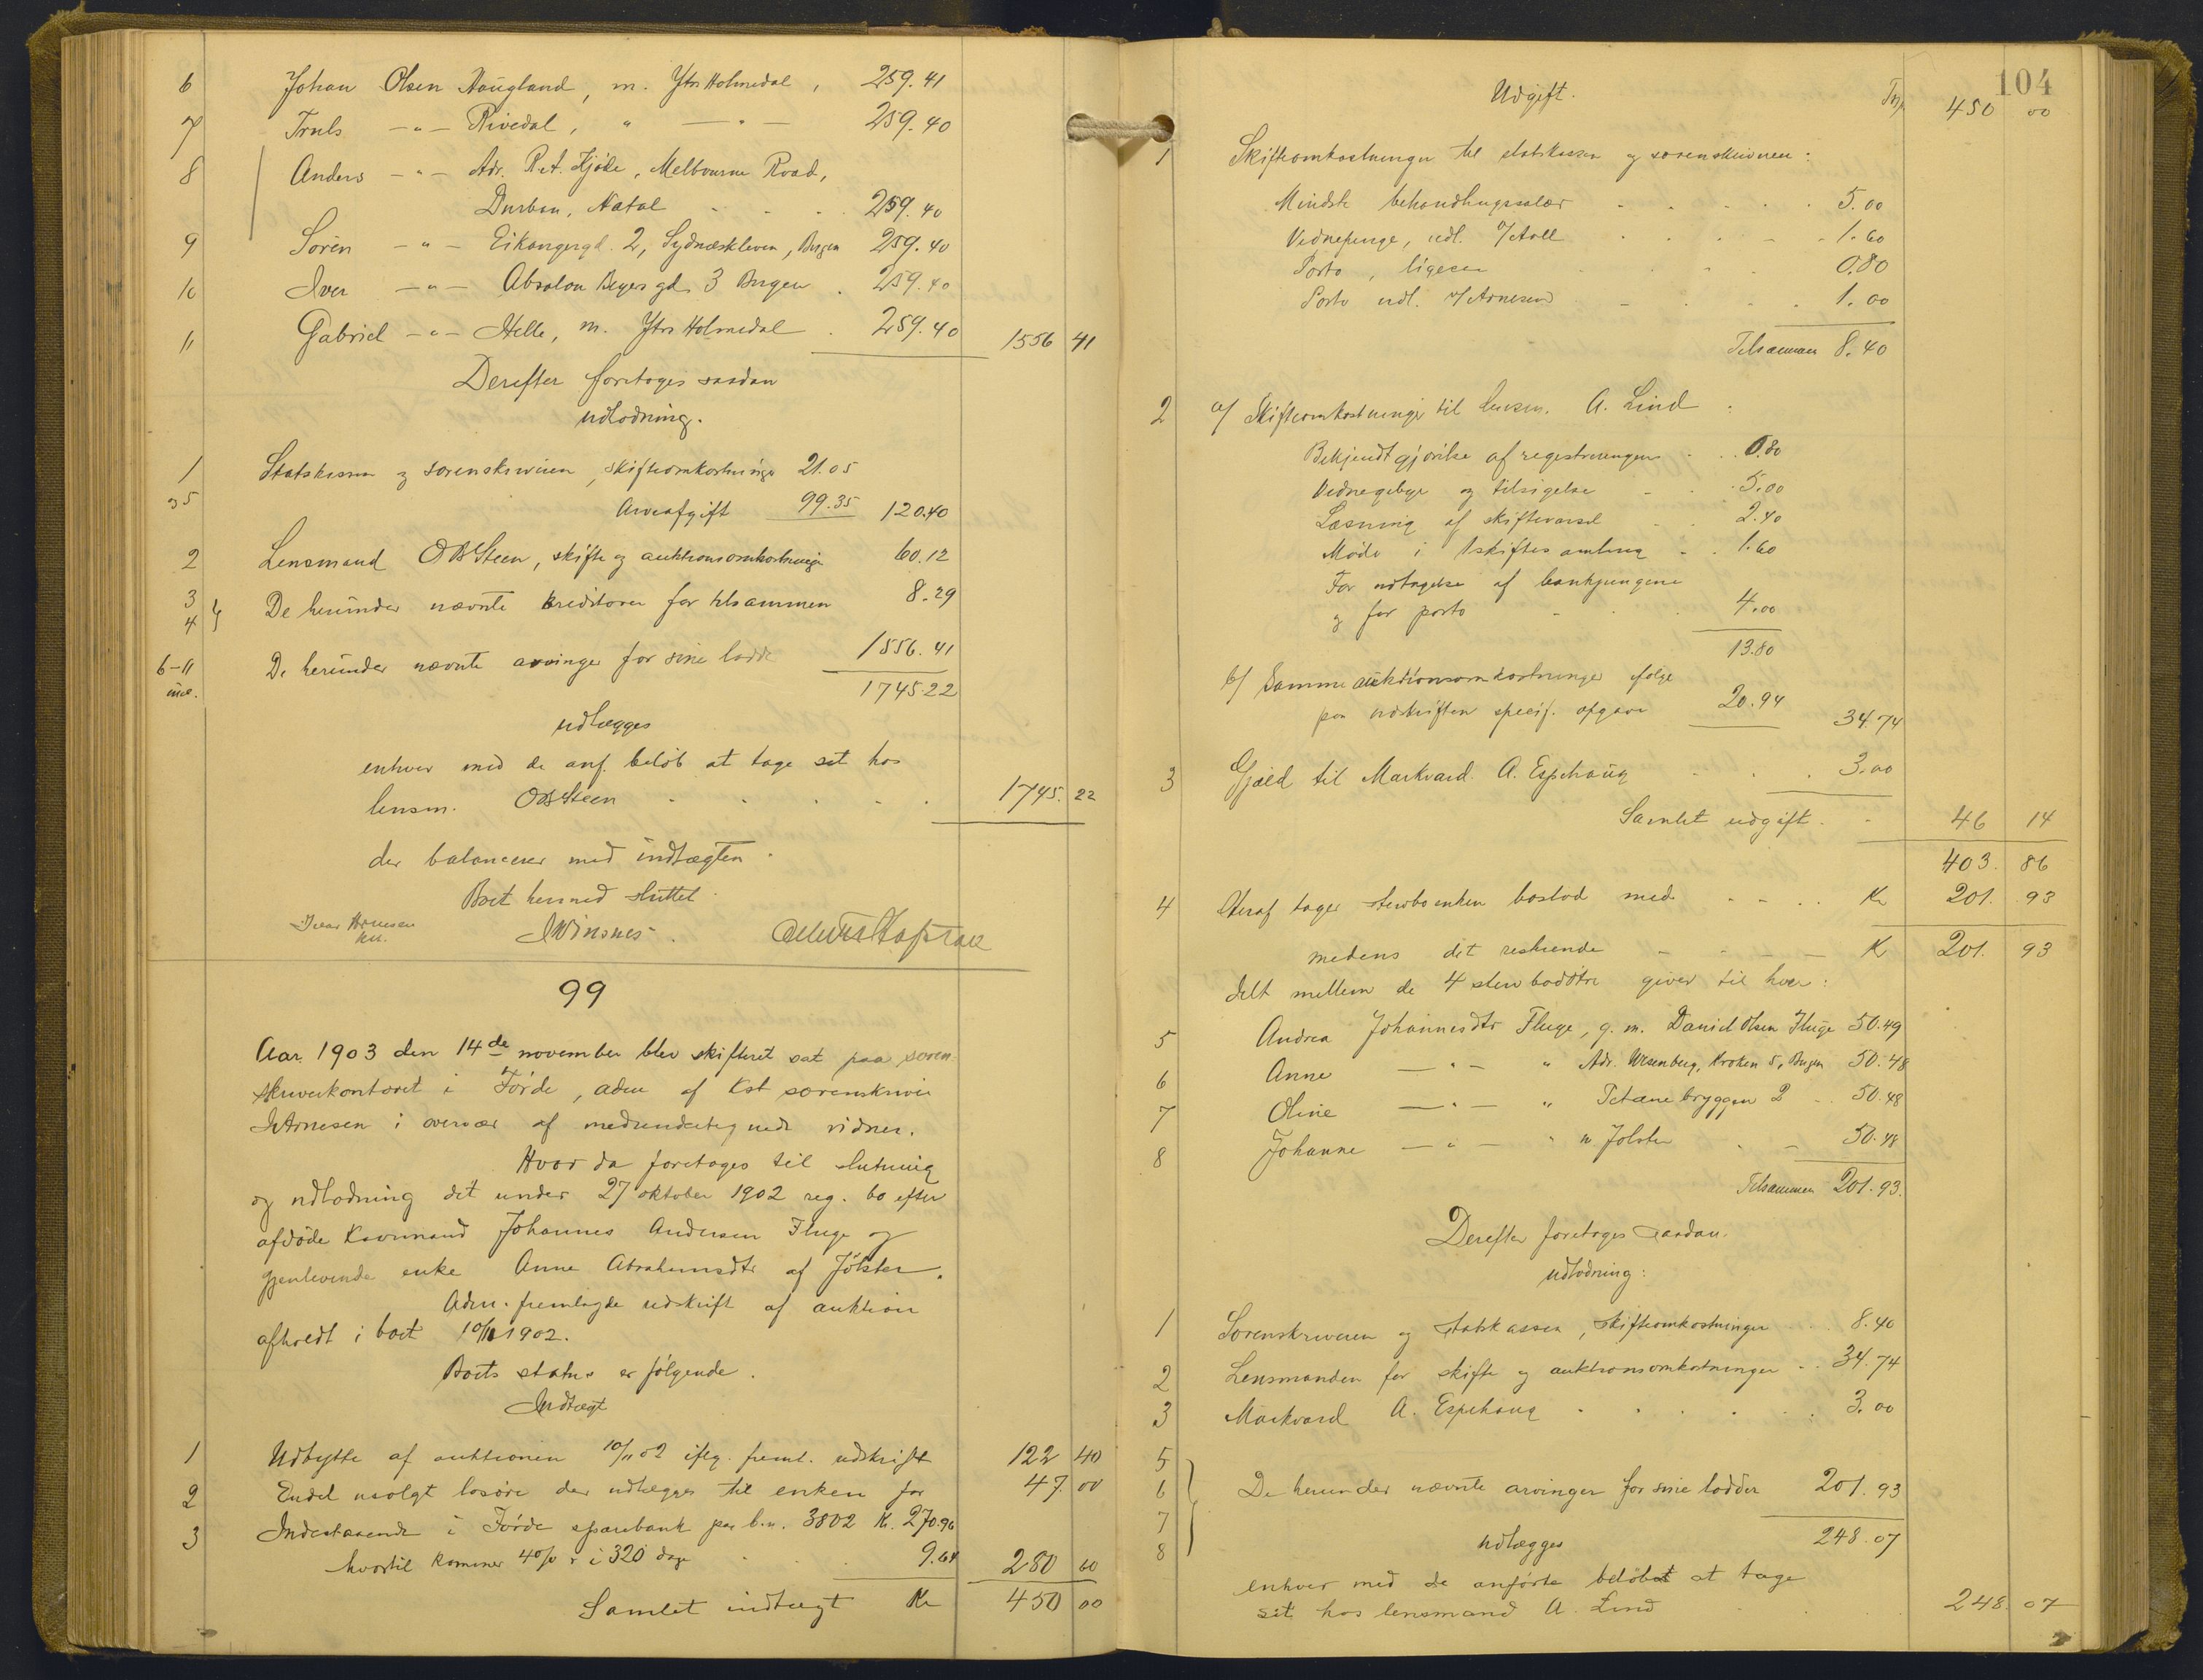 6 Johan Olsen Haugland, m. Ytre Holmedal, 259.41
7 Truls -"- Rivedal, " -"- 259.40
8 Anders -"- Adr. Kjøde, Melbourne Road,
Durban, Natal 259.40
9 Søren -"- Eikangergd. 2, Sydneskleven, Bergen 259.40
10 Iver -"- Absalon Beyers gd. 3 Bergen . 259.40
11 Gabriel -"- Helle, m. Ytre Holmedal . 259.40 1556 41
Derefter foretoges saadan
udlodning.
1 Statskassen og sorenskriveren, skifteomkostninger 21.05
35 Arveafgift 99.35 120.40
2 Lensmand O B Steen, skifte og auktionsomkostninger 60.12
3
4 De herunder nævnte kreditorer for tilsammen 8.29
6-11 De herunder nævnte arvinger for sine lodder 1556.41
incl. 1745.22
udlægges
enhver med de anf. beløb at tage sit hos
lensm. O B Steen 1745. 22
der balancerer med indtægten.
Boet hermed sluttet.
Ivar Arnesen
kst. Winsnes.
99
Aar 1903 den 14de november blev skifteret sat paa soren-
skriverkontoret i Førde, adm. af kst sorenskriver
I Arnesen i overvær af medundertegnede vidner.
Hvor da foretoges til slutning
og udlodning det under 27 oktober 1902 reg. bo efter
afdøde kaarmand Johannes Andersen Fluge og
gjenlevende enke Anne Abrahamsdtr af Jølster.
Adm. fremlagde udskrift af auktion
afholdt i boet 10/11 1902.
Boets status er følgende.
Indtægt
1 Udbytte af auktionen 10/11 02 iflg. freml. udskrift 122 40
2 Endel usolgt løsøre der udlægges til enken for 47 00
3 Indestaaende i Førde sparebank paa b.n. 3802 Kr. 270.96
hvortil kommer 4% r i 320 dage 9.64 280 60
Samlet indtægt Kr 450 00
104
Udgift. Trsp 450 00
1 Skifteomkostninger til statskassen og sorenskriveren:
Mindste behandlingssalær 5.00
Vidnepenge, udl. 1.60
Porto, ligesaa 0.80
Porto udl. Arnesen 1.00
Tilsammen 8.40
2 a/ Skifteomkostninger til lensm. A. Lind :
Bekjendtgjørelse af registreringen 0.80
Vidnegebyr og tilsigelse 5.00
Læsning af skiftevarsel 2.40
Møde i 1 skiftesamling 1.60
For udtagelse af bankpengene
og for porto 4.00
13.80
b/ Samme auktionsomkostninger ifølge
paa udskriften specif. opgave 20.94 34.74
3 Gjæld til Markvard A. Espehaug 3.00
Samlet udgift 46 14
403. 86
4 Heraf tager stervboenken boslod med Kr 201. 93
medens det resterende Kr 201. 93
delt mellem de 4 stervbodøtre giver til hver:
5 Andrea Johannesdtr Fluge, g. m. Daniel Olsen Fluge 50.49
6 Anne -"- " Adr. Wesenberg, Kroken 5, Bergen 50.48
7 Oline -"- " bryggen 2 50.48
8 Johanne -"- " m Jølster 50.48
Tilsammen 201.93.
Derefter foretoges saadan
udlodning:
1 Sorenskriveren og statskassen, skifteomkostninger 8.40
2 Lensmanden for skifte og auktionsomkostninger 34.74
3 Markvard A. Espehaug 3.00
5
6 De herunder nævnte arvinger for sine lodder 201.93
7
8 udlægges 248.07
enhver med de anførte beløbet at tage
sit hos lensmand A. Lind 248. 07